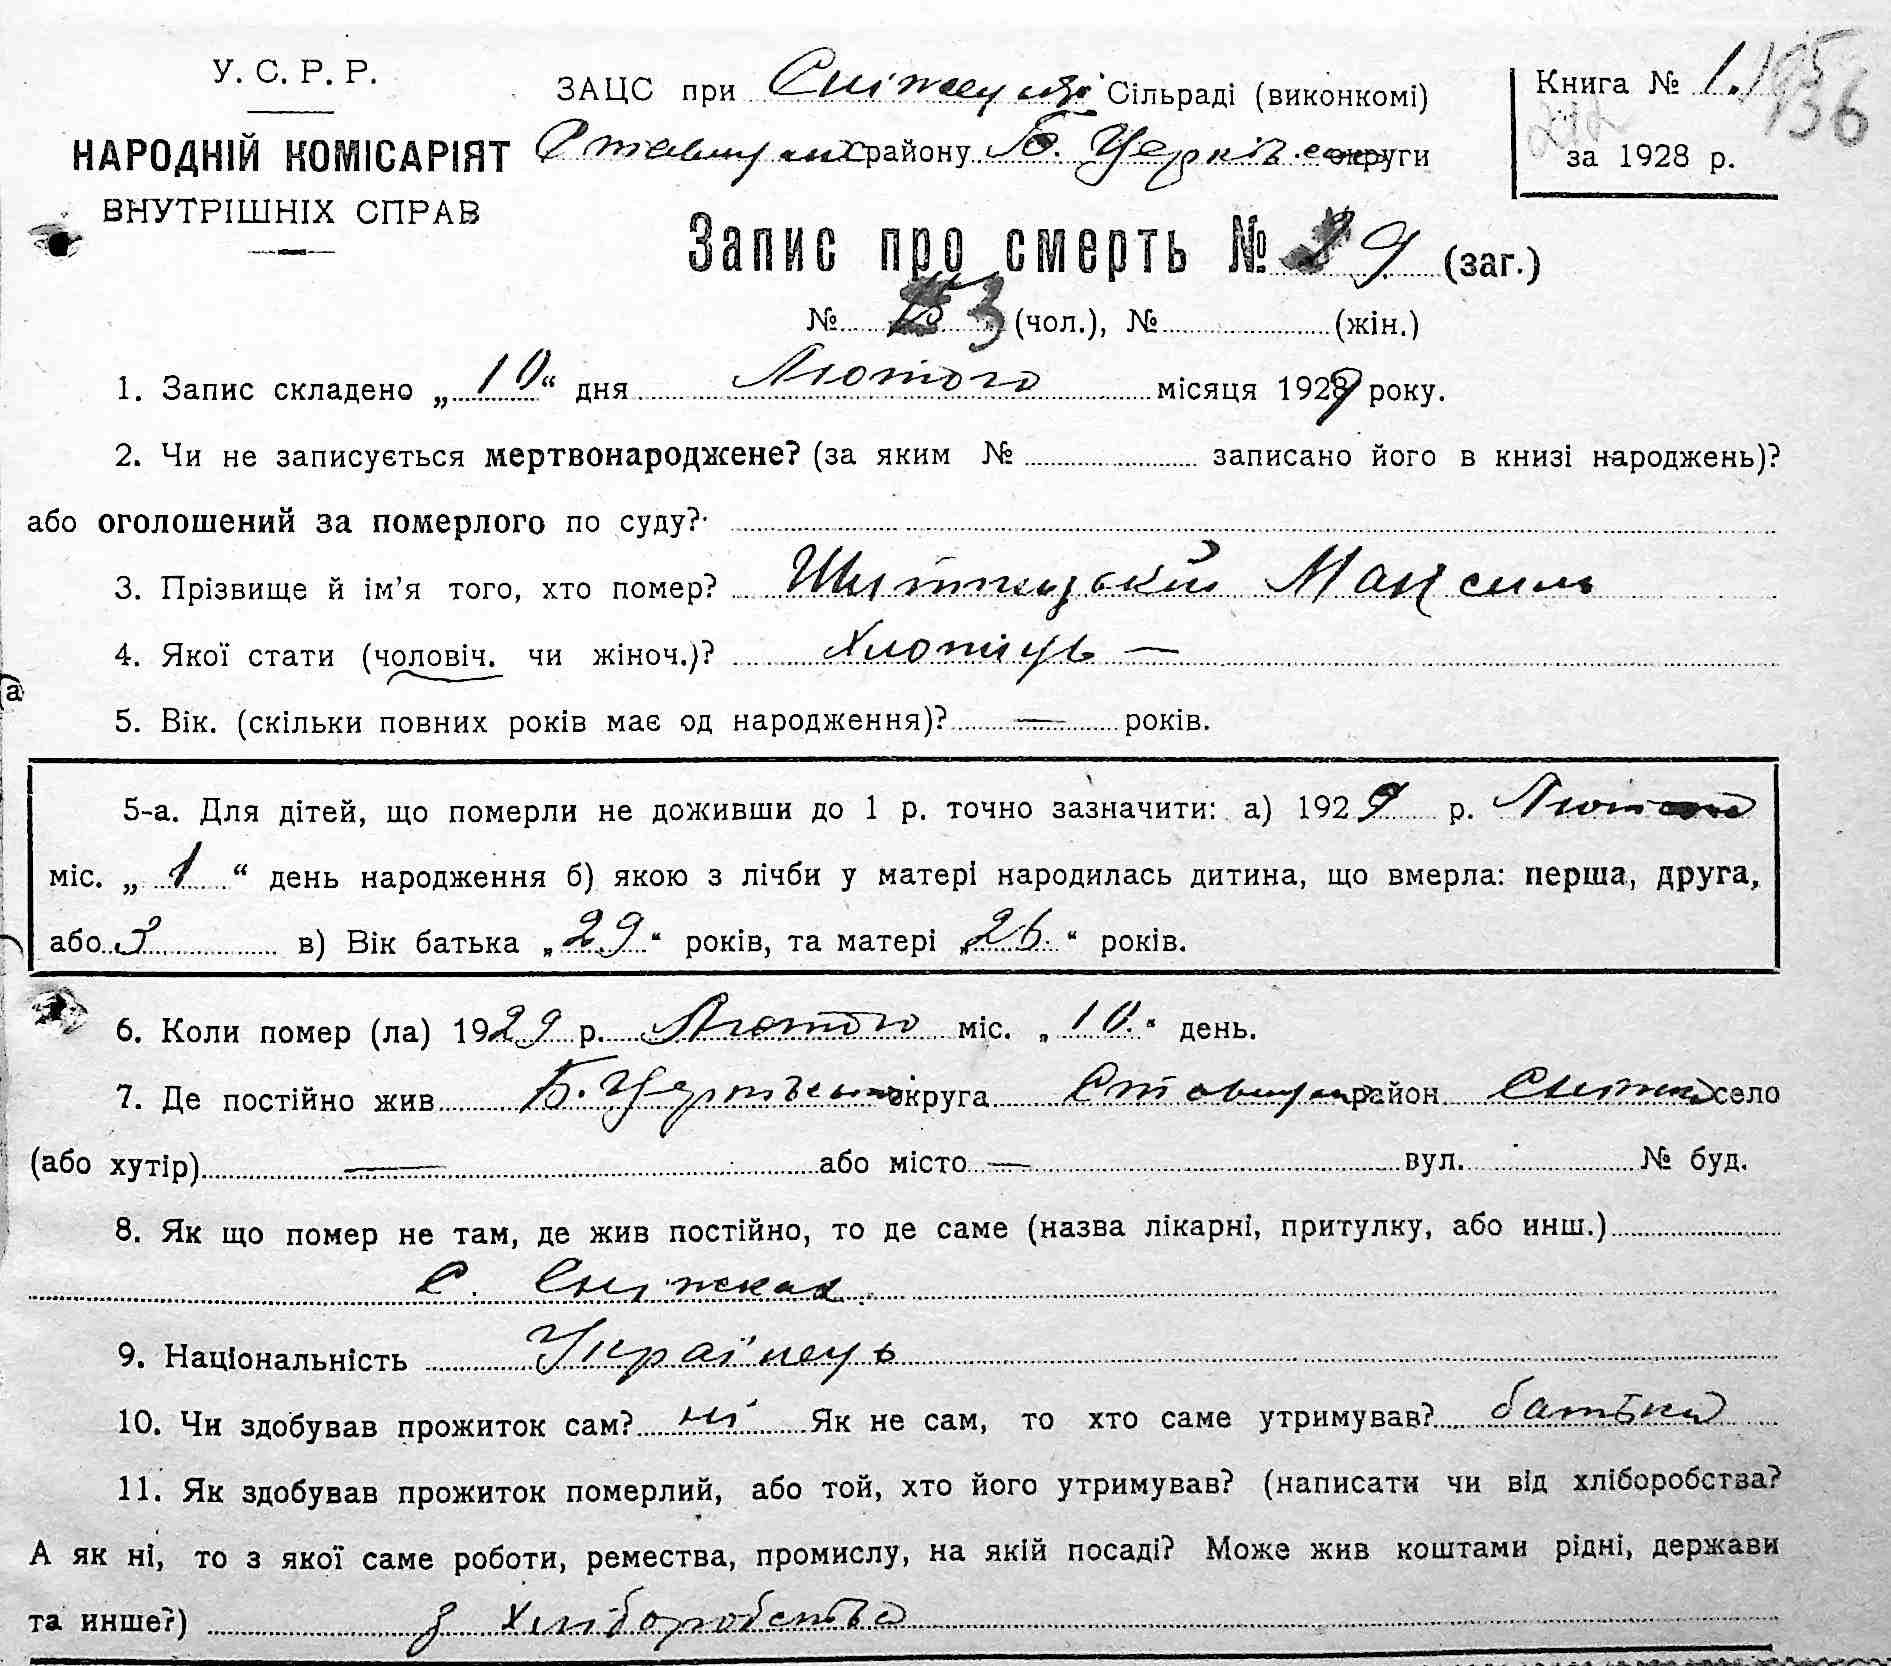 У. С. Р. Р.
НАРОДНІЙ КОМІСАРІЯТ
ВНУТРІШНІХ СПРАВ
ЗАЦС при Сніжкуцкі Сільраді (виконкомі)
району Б. Церків округи
Книга № 1.
136
за 1928 р.
Запис про смерть № 9 (заг.)
№ 3 (чол.), № (жін.)
1. Запис складено „10“ дня Лютого місяця 1929 року.
2. Чи не записується мертвонароджене? (за яким № записано його в книзі народжень)?
або оголошений за померлого по суду?
3. Прізвище й ім’я того, хто помер? Максим
4. Якої стати (чоловіч. чи жіноч.)? Хлопіць —
5. Вік. (скільки повних років має од народження)? — років.
5-а. Для дітей, що померли не доживши до 1 р. точно зазначити: а) 1929 р. Лютого
міс. „1“ день народження б) якою з лічби у матері народилась дитина, що вмерла: перша, друга,
або 3 в) Вік батька „29“ років, та матері „26“ років.
6. Коли помер (ла) 1929 р. Лютого міс. „10“ день.
7. Де постійно жив Б. Церківська округа район село
(або хутір) — або місто — вул. № буд.
8. Як що помер не там, де жив постійно, то де саме (назва лікарні, притулку, або инш.)
С. Сніжках
9. Національність Українець
10. Чи здобував прожиток сам? ні Як не сам, то хто саме утримував? батько
11. Як здобував прожиток померлий, або той, хто його утримував? (написати чи від хліборобства?
А як ні, то з якої саме роботи, ремества, промислу, на якій посаді? Може жив коштами рідні, держави
та инше?) з хліборобства